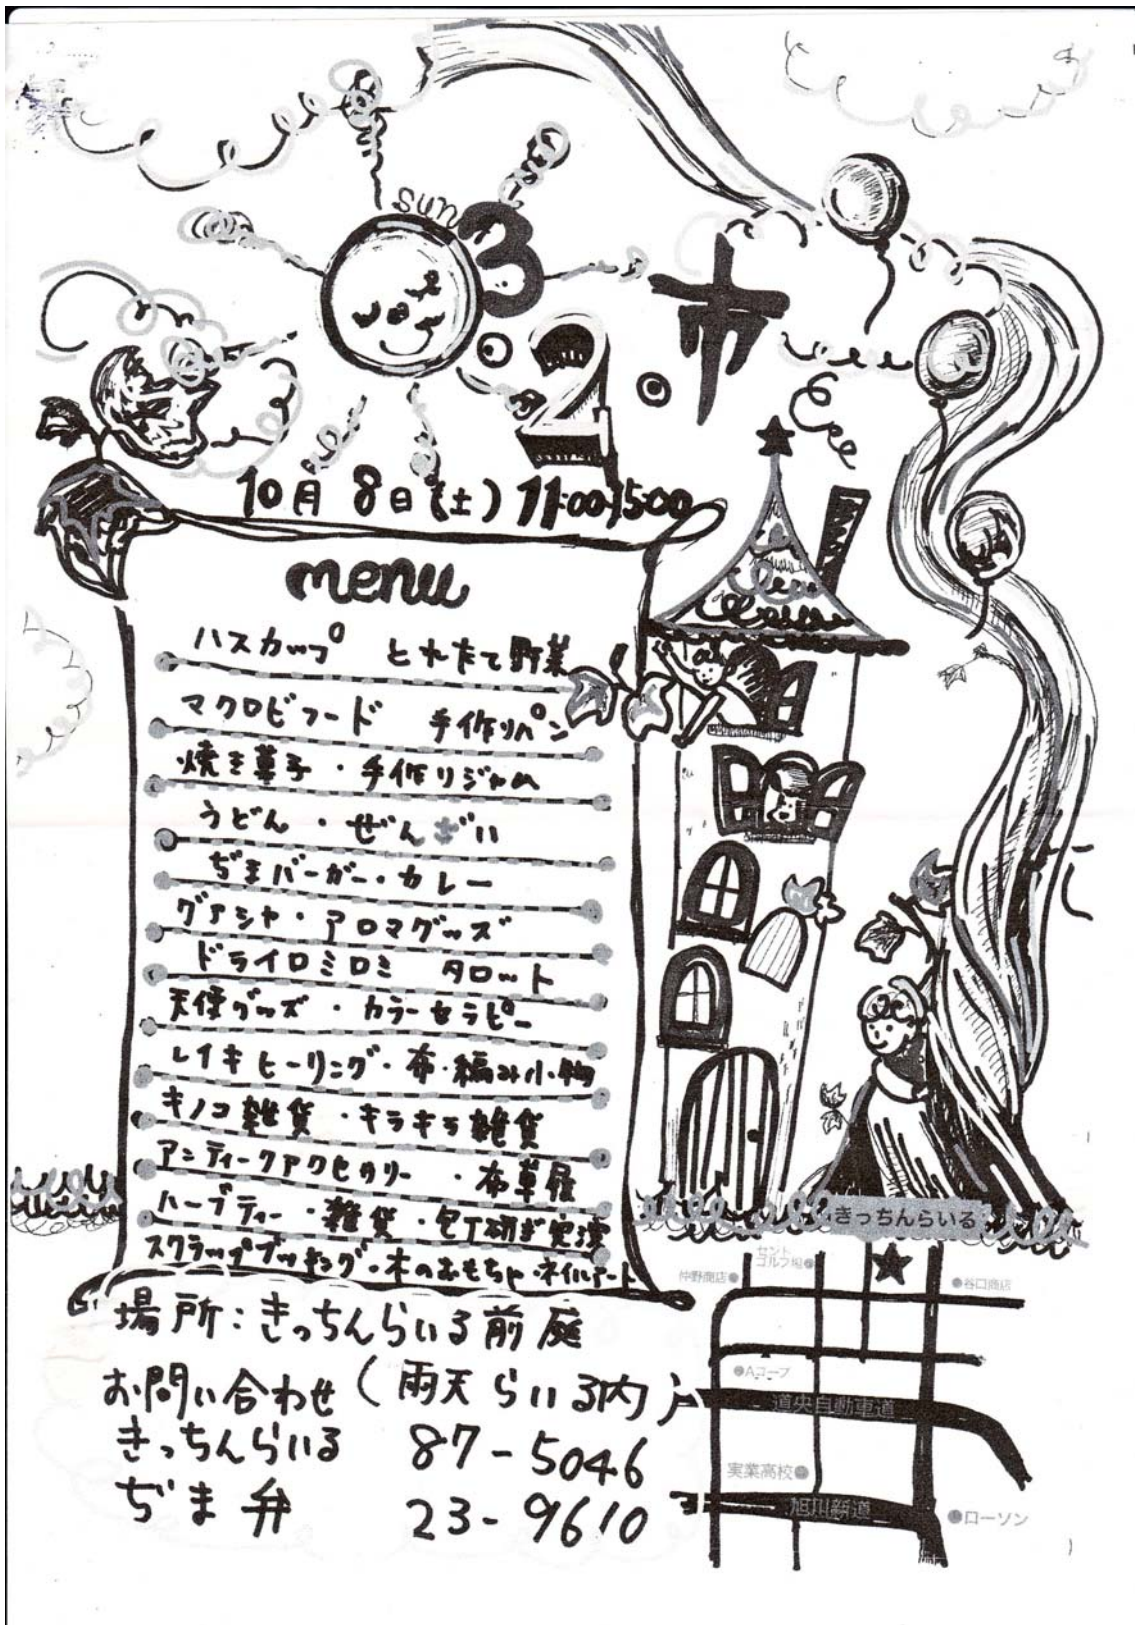 sun
3・2・市
10月 8日(土) 11:00-15:00
menu
ハスカップ とれたて野菜
マクロビフード 手作りパン
焼き菓子・手作りジャム
うどん・ぜんざい
ぢまバーガー・カレー
グアシャ・アロマグッズ
ドライロミロミ タロット
天使グッズ・カラーセラピー
レイキヒーリング・布・編み小物
キノコ雑貨・キラキラ雑貨
アンティークアクセサリー・布草履
ハーブティー・雑貨・包丁研ぎ実演
スクラップブッキング・木のおもちゃ・ネイルアート
場所:きっちんらいる前庭
お問い合わせ(雨天らいる内)
きっちんらいる 87-5046
ぢま弁 23-9610
きっちんらいる
セント
ゴルフ場
仲野商店
谷口商店
Aコープ
道央自動車道
実業高校
旭川新道
ローソン